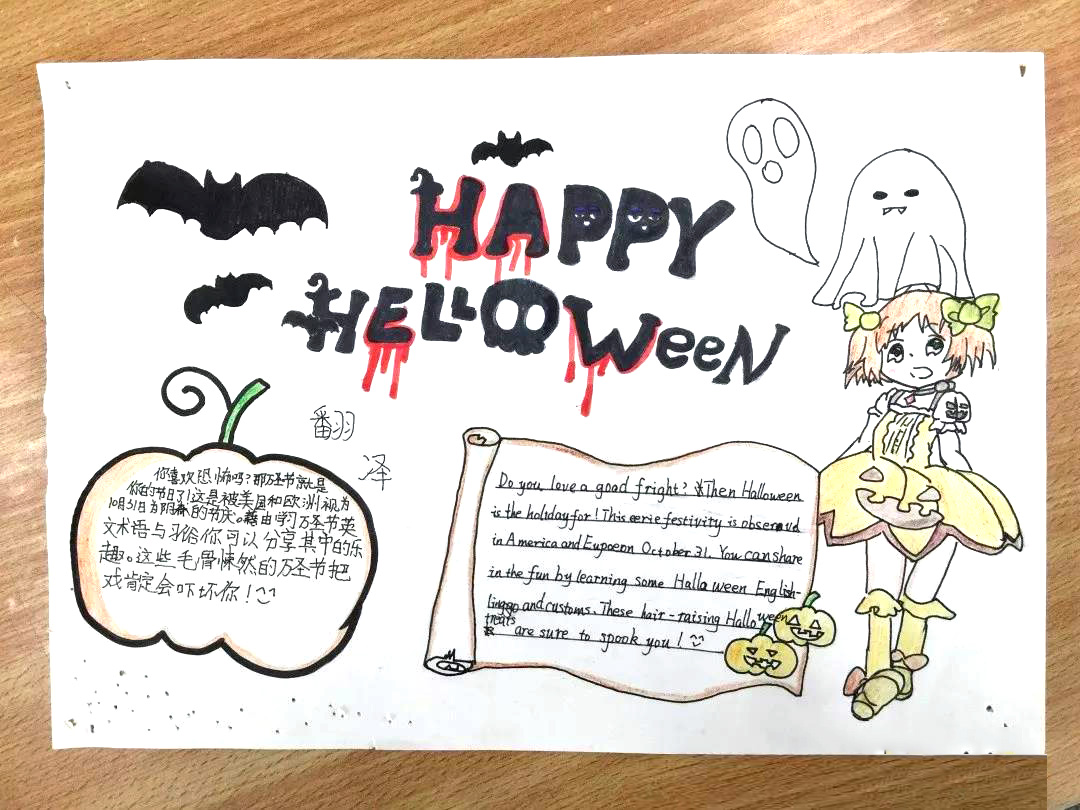 HAPPY
HELLOWeeN
翻
泽
你喜欢恐怖吗?那万圣节就是
你的节日了!这是被美国和欧洲视为
10月31日为阴森的节庆。藉由学习万圣节英
文术语与习俗你可以分享其中的乐
趣。这些毛骨悚然的万圣节把
戏肯定会吓坏你!
Do you love a good fright? Then Halloween
is the holiday for! This eerie festivity is observed
in America and Eupoenn October 31. You can share
in the fun by learning some Halla ween English-
linggo and customs. These hair-raising Hallo ween
treats are sure to spook you!